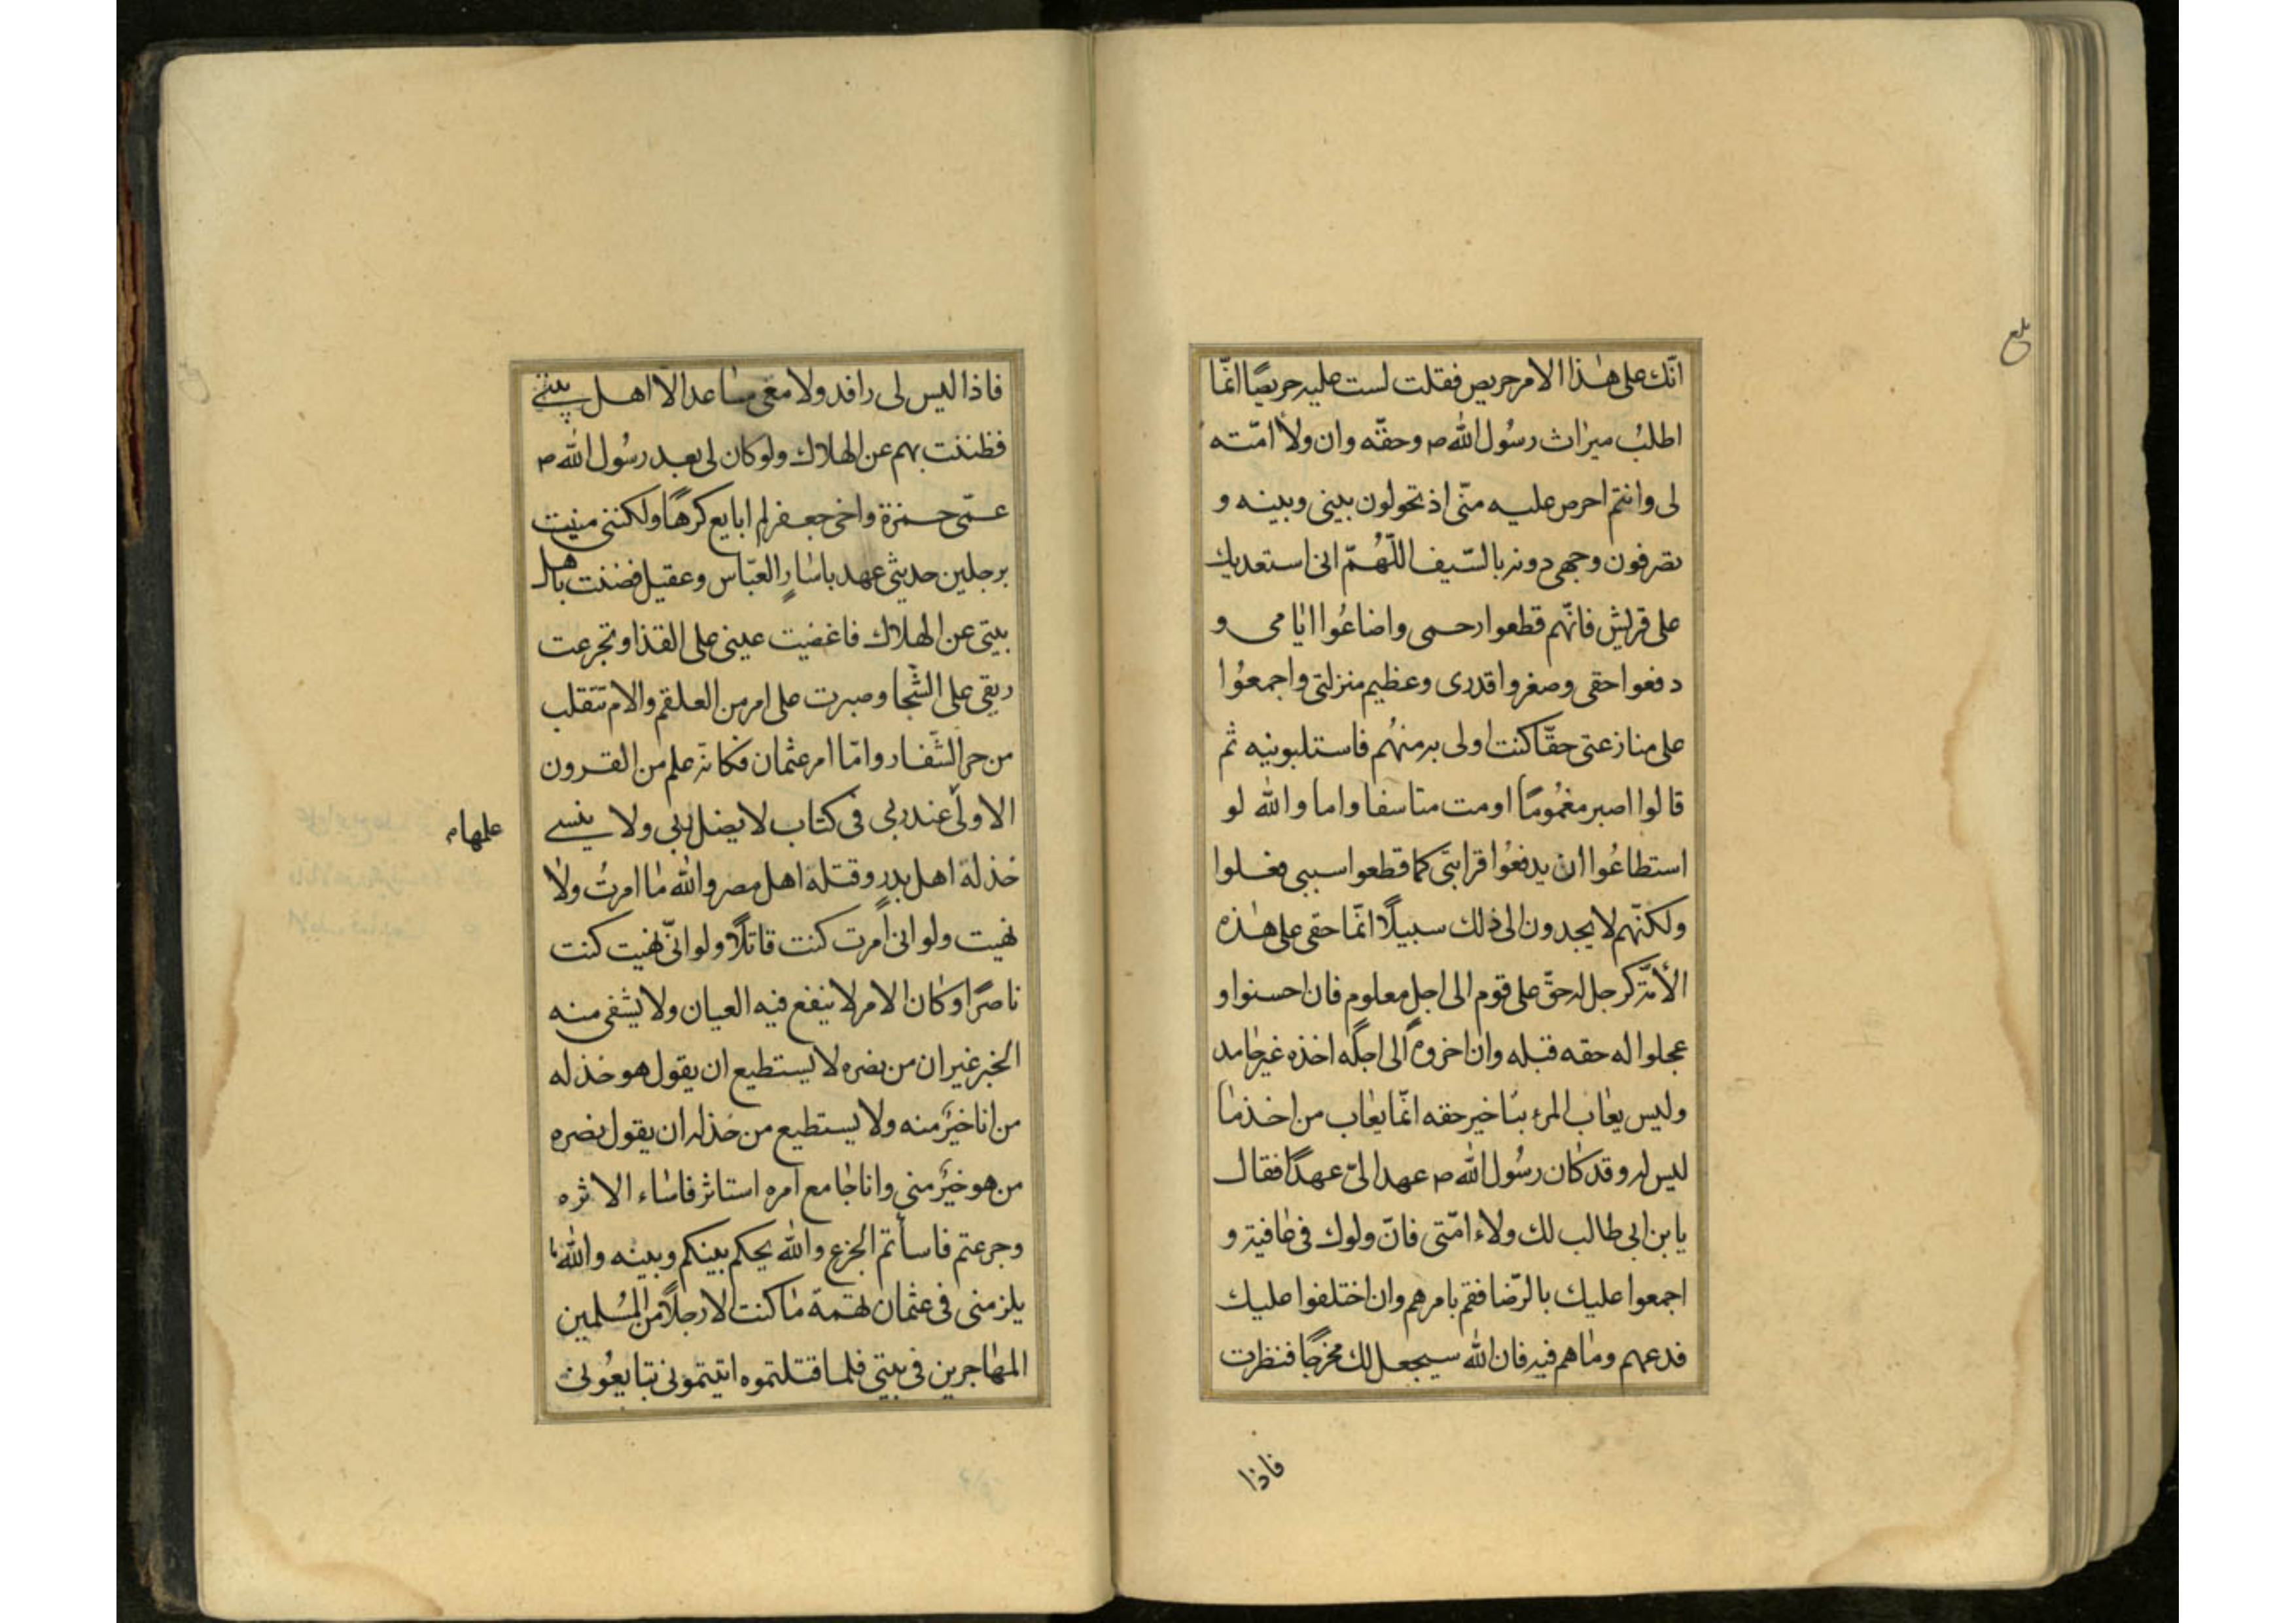 بلغ
انّك على هٰذا الامر حريص فقلت لست عليه حريصًا انّما
اطلبُ ميراث رسُول الله ص وحقّه وان ولاٰ امّته
لى وانتم احرص عليه منّى اذ تحولون بينى وبينه و
تصرفون وجهى دونه بالسّيف اللّهُمّ انى استعديك
على قريش فانّهم قطعوا رحمى واضاعُوا ايّامى و
دفعوا حقى وصغروا قدرى وعظيم منزلتى واجمعُوا
على منازعتى حقّا كنت اولى به منهُم فاستلبونيه ثم
قالوا اصبر مغمُومًا اومت متاسفا واما والله لو
استطاعُوا ان يدفعُوا قرابتى كما قطعوا سببى فعلوا
ولكنّهم لا يجدون الى ذلك سبيلًا انّما حقى على هٰذه
الأمّة كرجل له حقّ على قوم الى اجل معلوم فان احسنوا و
عجلوا له حقه قبله وان اخروه الى اجله اخذه غير حامد
وليس يعاب المرء بتاخير حقه انّما يعاب من اخذ ما
ليس له وقد كان رسُول الله ص عهد الىّ عهدًا فقال
يا بن ابى طالب لك ولاء امّتى فان ولوك فى عافية و
اجمعوا عليك بالرّضا فقم بامرهم وان اختلفوا عليك
فدعهم وما هم فيه فان الله سيجعل لك مخرجًا فنظرت
فاذا
فاذا ليس لى رافد ولا معى مساعد الّا اهل بيتى
فظننت بهم عن الهلاك ولو كان لى بعد رسُول الله ص
عمّى حمزة واخى جعفر لم ابايع كرهًا ولكننى منيت
برجلين حديثى عهد باسٰارٍ العبّاس وعقيل فضننت باهل
بيتى عن الهلاك فاغضيت عينى على القذا وتجرعت
ريقى على الشّجا وصبرت على امر من العلقم والام تتقلب
من حر الشّفار وامّا امر عثمان فكانه علم من القرون
الاولى عند ربى فى كتاب لا يضل ربى ولا ينسى
علمها م
خذله اهل بدرٍ وقتله اهل مصر والله مٰا امرتُ ولاٰ
نهيت ولو انى أمرت كنت قاتلًا ولو انّى نهيت كنت
ناصرًا وكان الامر لا ينفع فيه العيان ولا يشفى منه
الخبر غير ان من نصره لا يستطيع ان يقول هو خذله
من انا خيرٌ منه ولا يستطيع من خذله ان يقول نصره
من هو خيرٌ منى وانا جامع امره استاثر فاساء الاثره
وجزعتم فاسأتم الجزع والله يحكم بينكم وبينه والله ما
يلزمنى فى عثمان تهمة مٰا كنت الا رجلًا من المسُلمين
المهاجرين فى بيتى فلما قتلتموه اتيتمونى تبايعُونى